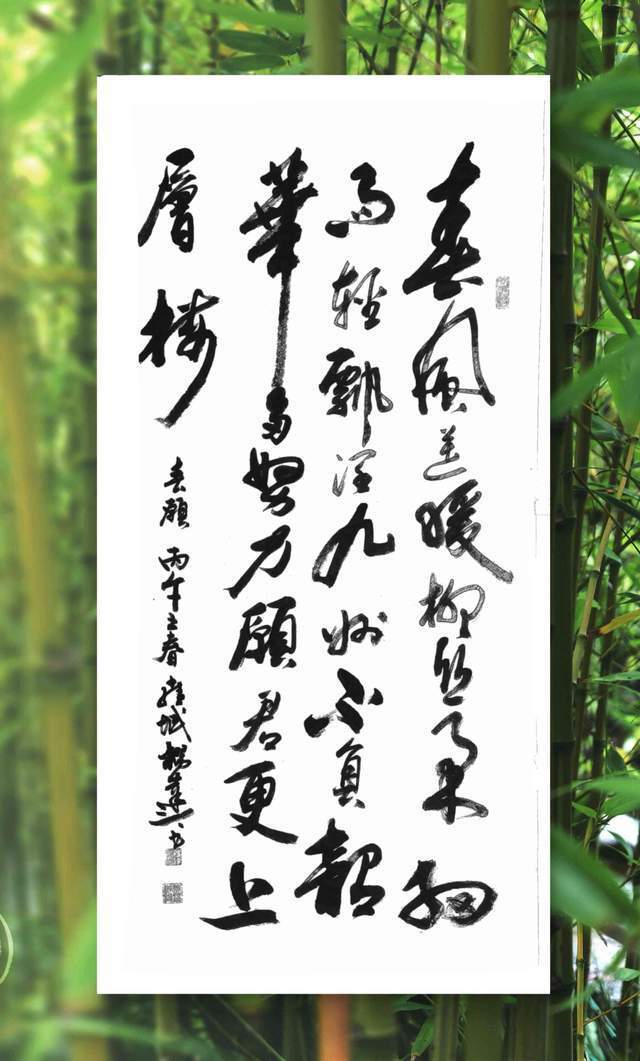 春風送暖柳絲柔細
雨輕飄潤九州不負韶
華多努力願君更上
層樓
春願 丙午立春